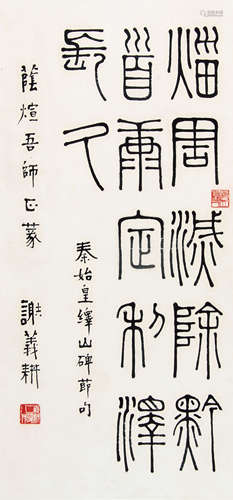 災害滅除黔
首康定利澤
長久
秦始皇繹山碑節句
蔭煊吾師正篆
謝義耕